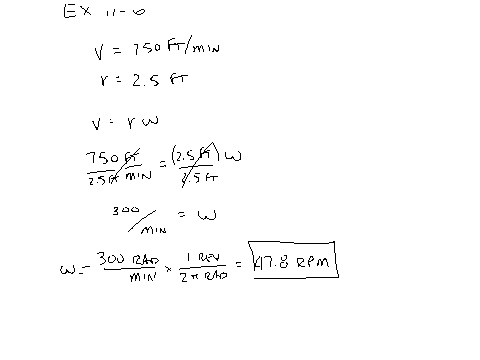 EX 11-6
V = 750 FT/MIN
r = 2.5 FT
V = r ω
750 FT / 2.5 FT MIN = (2.5 FT) ω / 2.5 FT
300 / MIN = ω
ω = 300 RAD / MIN × 1 REV / 2π RAD = 47.8 RPM